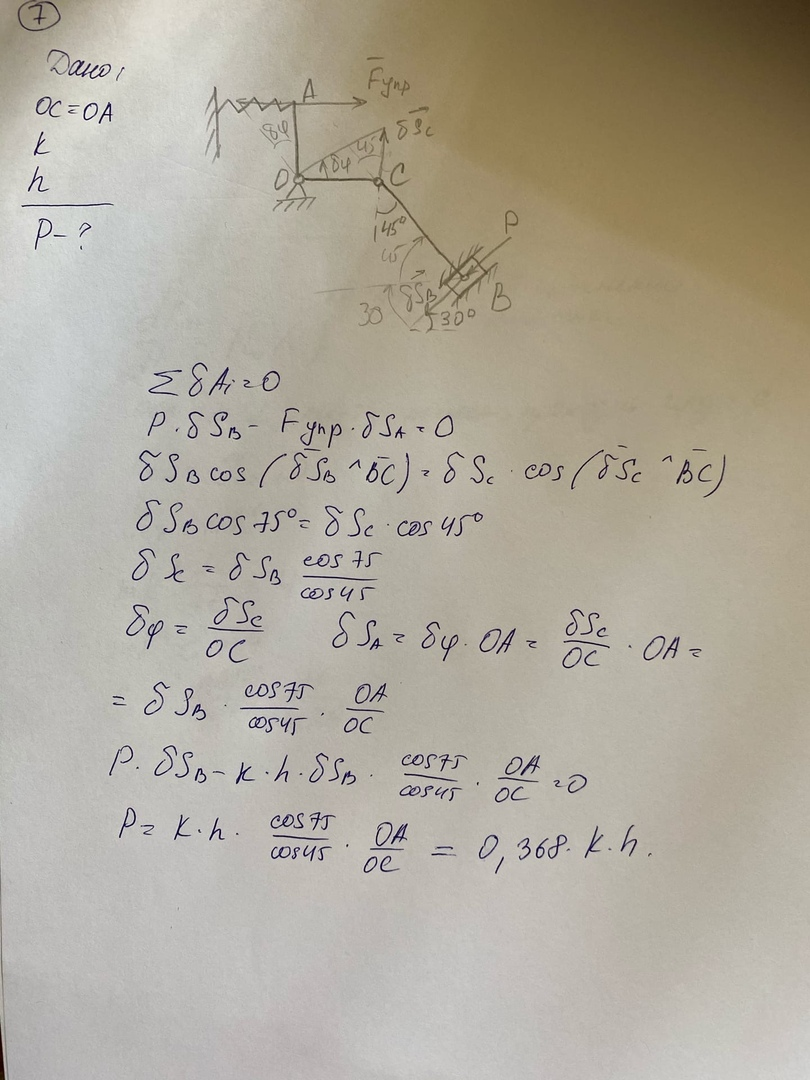 7
Дано:
OC=OA
k
h
P-?
A
F̄упр
δφ
45
δS̄c
O
δφ
C
45°
45
P
δS̄B
30
30°
B
ΣδAi=0
P·δSB - Fупр·δSA=0
δSB cos(δS̄B ^ B̄C̄) = δSc · cos(δS̄c ^ B̄C̄)
δSB cos75° = δSc · cos45°
δSc = δSB cos75/cos45
δφ = δSc/OC δSA = δφ · OA = δSc/OC · OA =
= δSB · cos75/cos45 · OA/OC
P · δSB - k · h · δSB · cos75/cos45 · OA/OC = 0
P = k · h · cos75/cos45 · OA/OC = 0,368 · k · h.